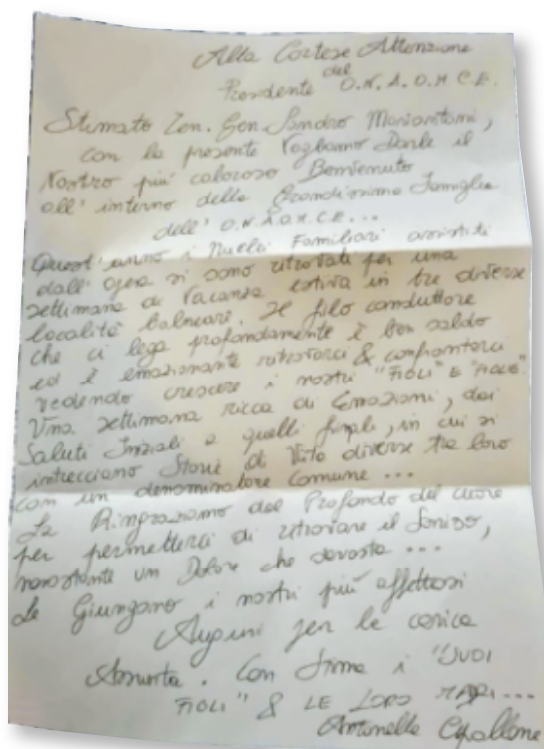 Alla Cortese Attenzione
del
Presidente O.N.A.O.M.C.E.
Stimato Ten. Gen. Sandro Mariantoni,
con la presente Vogliamo Darle il
Nostro più caloroso Benvenuto
all'interno della Grandissima Famiglia
dell' O.N.A.O.M.C.E...
Quest'anno i Nuclei Familiari assistiti
dall'opera si sono ritrovati per una
settimana di Vacanza estiva in tre diverse
località balneari. Il filo conduttore
che ci lega profondamente è ben saldo
ed è emozionante ritrovarci & confrontarci
vedendo crescere i nostri "FIGLI" E "FIGLIE".
Una settimana ricca di Emozioni, dai
Saluti Iniziali a quelli finali, in cui si
intrecciano Storie di Vita diverse tra loro
con un denominatore comune...
La Ringraziamo dal Profondo del cuore
per permetterci di ritrovare il Sorriso,
nonostante un Dolore che devasta...
Le Giungano i nostri più affettuosi
Auguri per la carica
Assunta. Con stima i "SUOI
FIGLI" & LE LORO
Antonella